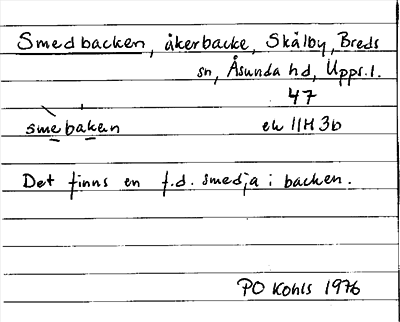 Smedbacken, åkerbacke, Skålby, Breds
sn, Åsunda hd, Upps. l.
47
smebaken
ek 11H 3b
Det finns en f.d. smedja i backen.
PO Kohls 1976